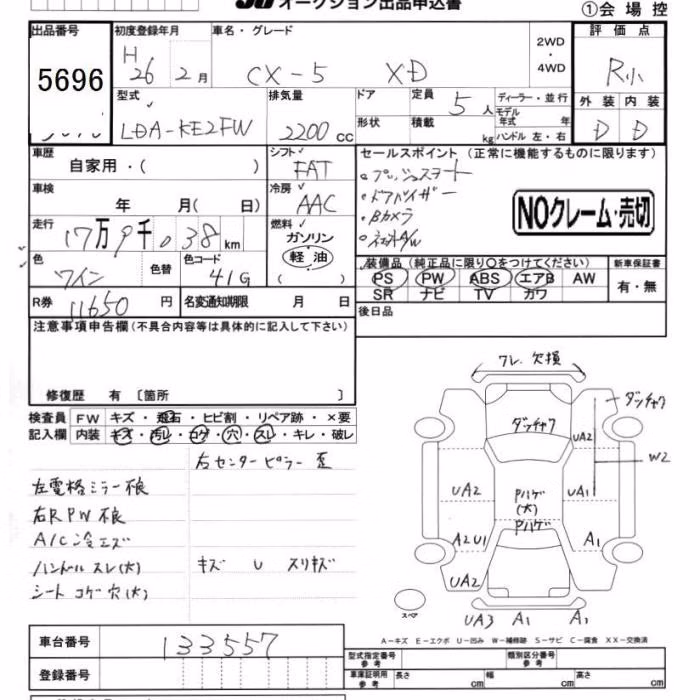 オークション出品申込書
①会場控
出品番号 初度登録年月 車名・グレード 2WD・4WD 評価点
5696 H 26 2月 CX-5 XD R小
型式 排気量 ドア 定員 5人 ディーラー・並行 外装 内装
LDA-KE2FW 2200cc 形状 積載 kg モデル年式 年 ハンドル 左・右 D D
車歴 自家用・( ) シフト FAT セールスポイント(正常に機能するものに限ります)
車検 年 月( 日) 冷房 AAC
・プッシュスタート
・ドアバイザー
・Bカメラ
・社外A/W
NOクレーム・売切
走行 17万9千038km 燃料 ガソリン 軽油 ( )
色 ワイン 色替 色コード 41G
装備品(純正品に限り○をつけてください) 新車保証書
PS PW ABS エアB AW 有・無
SR ナビ TV カワ
R券 11650円 名変通知期限 月 日 後日品
注意事項申告欄(不具合内容等は具体的に記入して下さい)
修復歴 有 [箇所 ]
検査員 FW キズ・飛石・ヒビ割・リペア跡・×要
記入欄 内装 キズ・汚レ・コゲ・穴・スレ・キレ・破レ
右センターピラー歪
左電格ミラー不良
右RPW不良
A/C冷エズ
ハンドルスレ(大) キズ U スリキズ
シートコゲ穴(大)
ワレ、欠損
ダッチャク
ダッチャク
UA2
W2
UA2 Pハゲ(大) UA1
Pハゲ
A2U1 A1
UA2
スペア
UA3 A1 A1
A-キズ E-エクボ U-凹み W-補修跡 S-サビ C-腐食 XX-交換済
車台番号 133557
型式指定番号 参考 類別区分番号 参考
登録番号 車庫証明用 参考 長さ cm 幅 cm 高さ cm